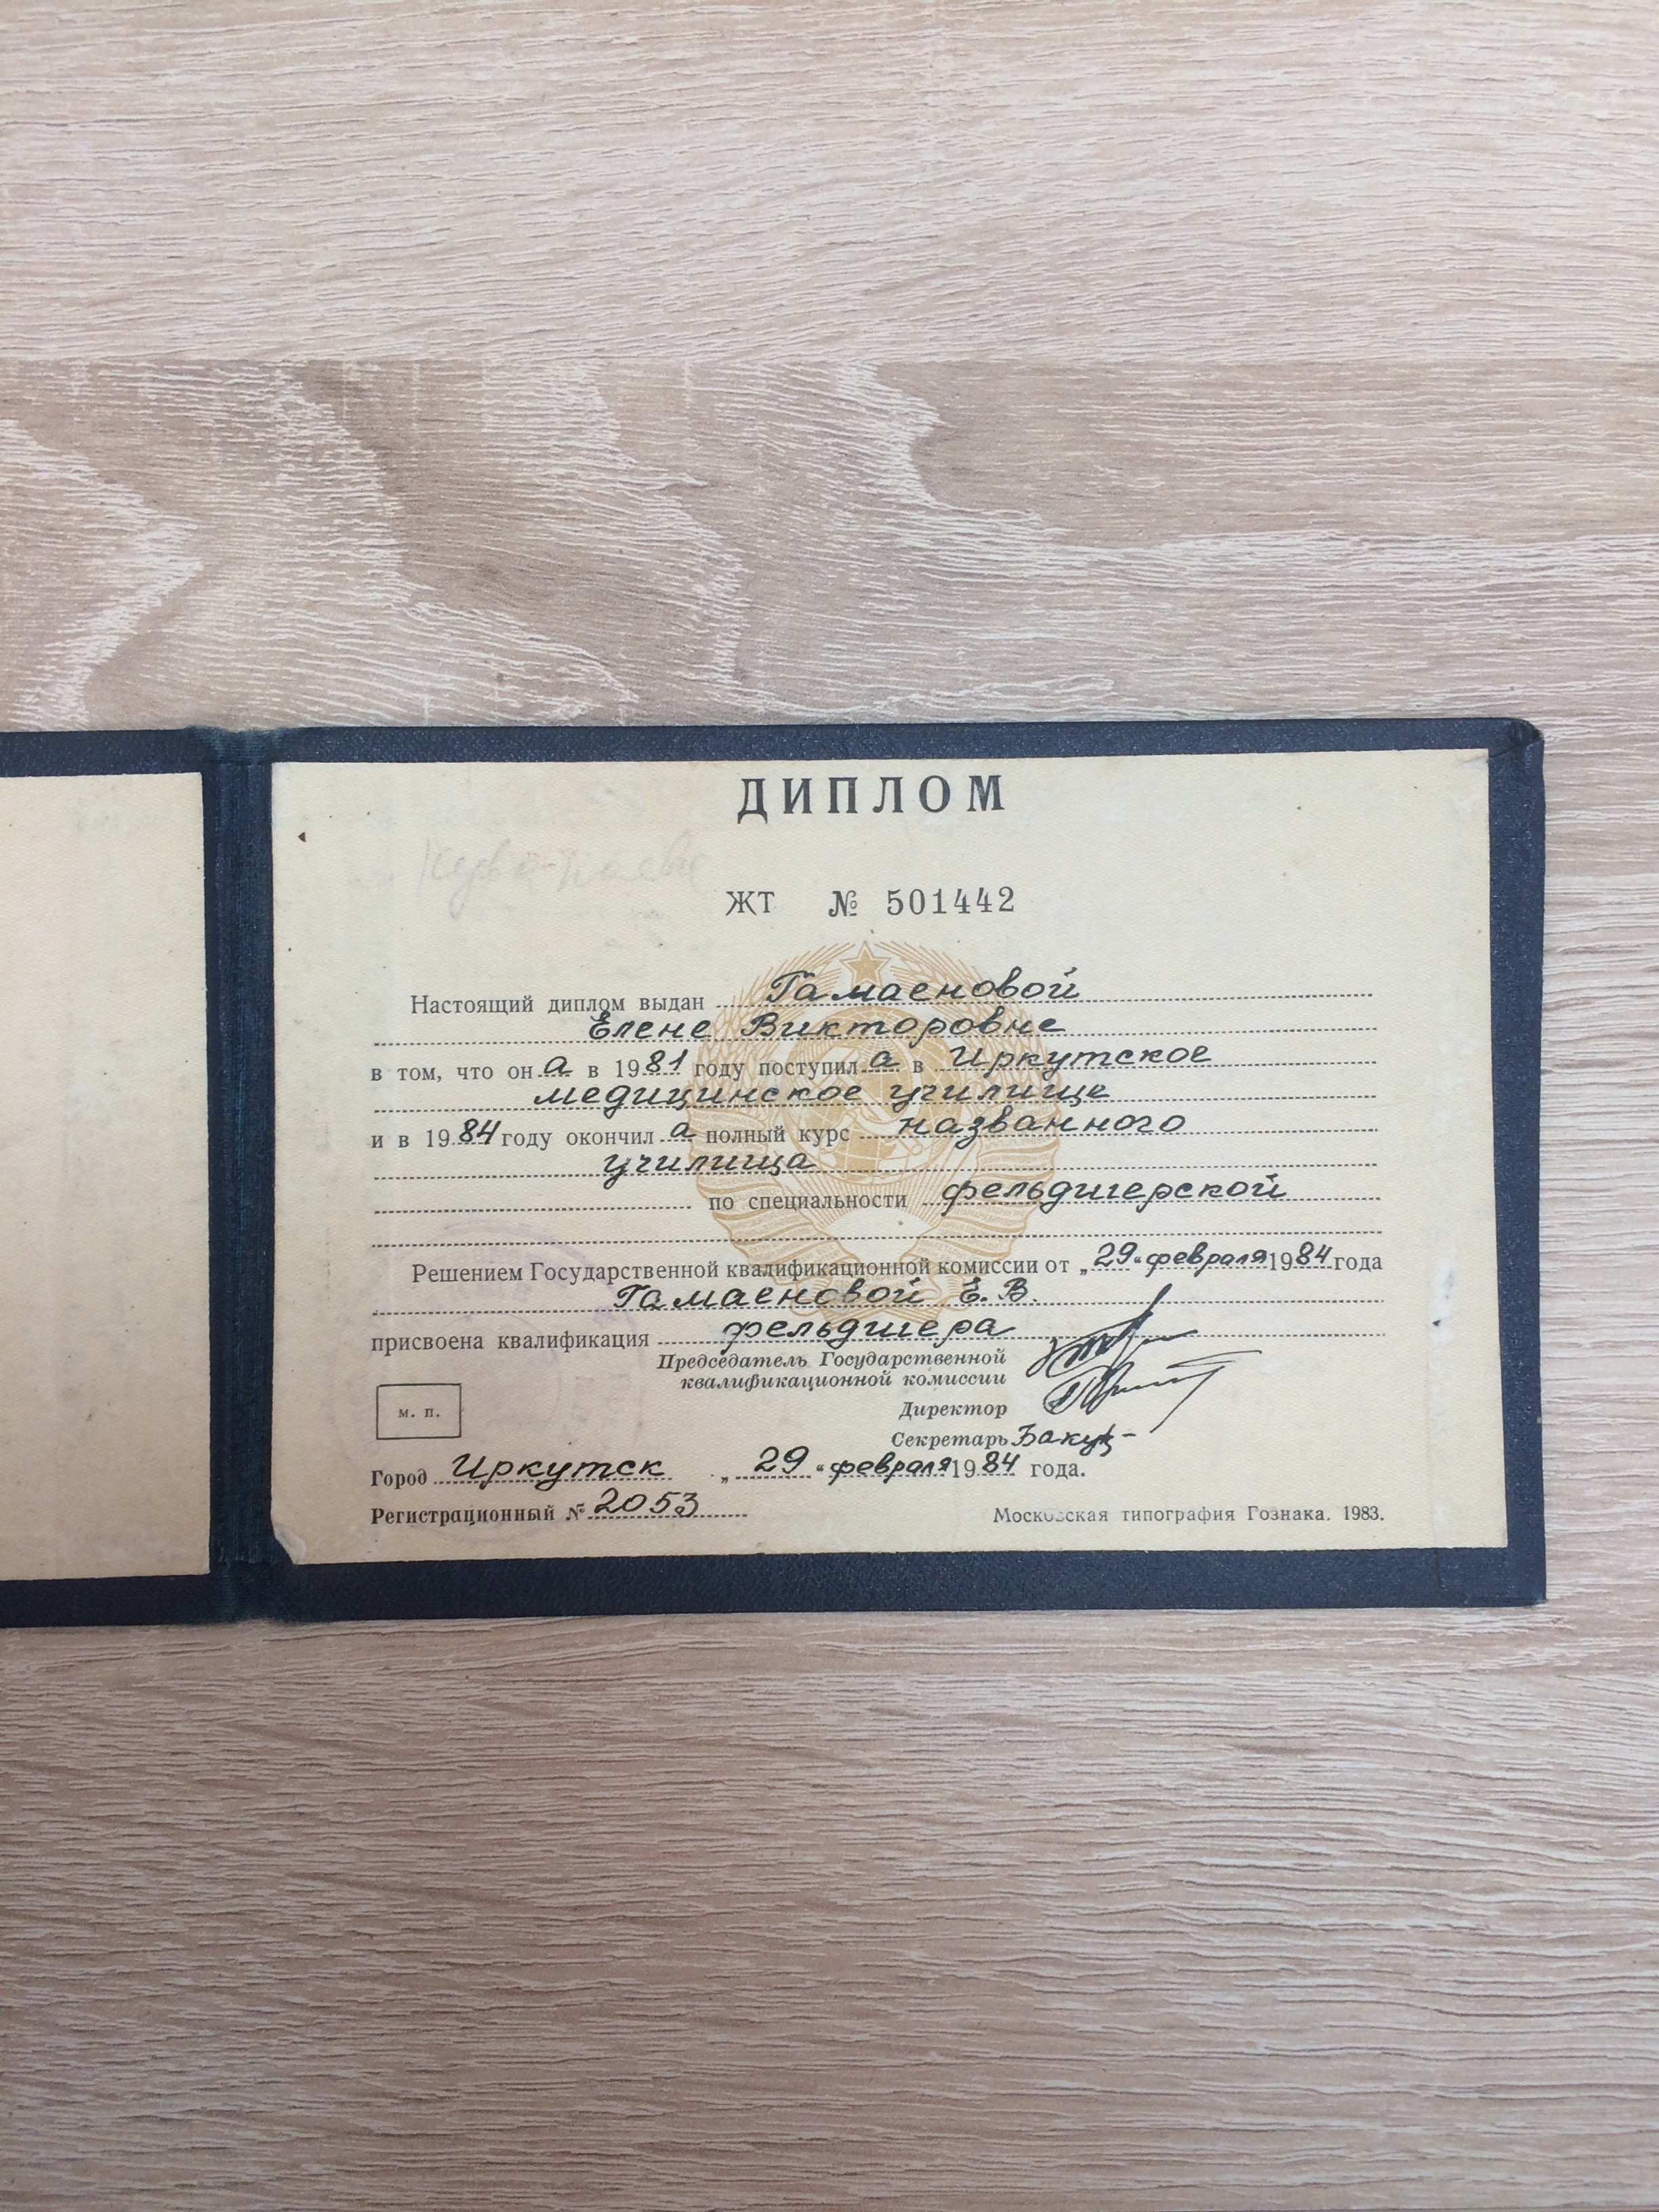 ДИПЛОМ
ЖТ № 501442
Настоящий диплом выдан Гамаеновой
Елене Викторовне
в том, что он а в 1981 году поступил а в Иркутское
медицинское училище
и в 1984 году окончил а полный курс названного
училища
по специальности фельдшерской
Решением Государственной квалификационной комиссии от „29“ февраля 1984 года
Гамаеновой Е.В.
присвоена квалификация фельдшера
Председатель Государственной
квалификационной комиссии
м. п.
Директор
Секретарь
Город Иркутск „29“ февраля 1984 года.
Регистрационный № 2053
Московская типография Гознака. 1983.